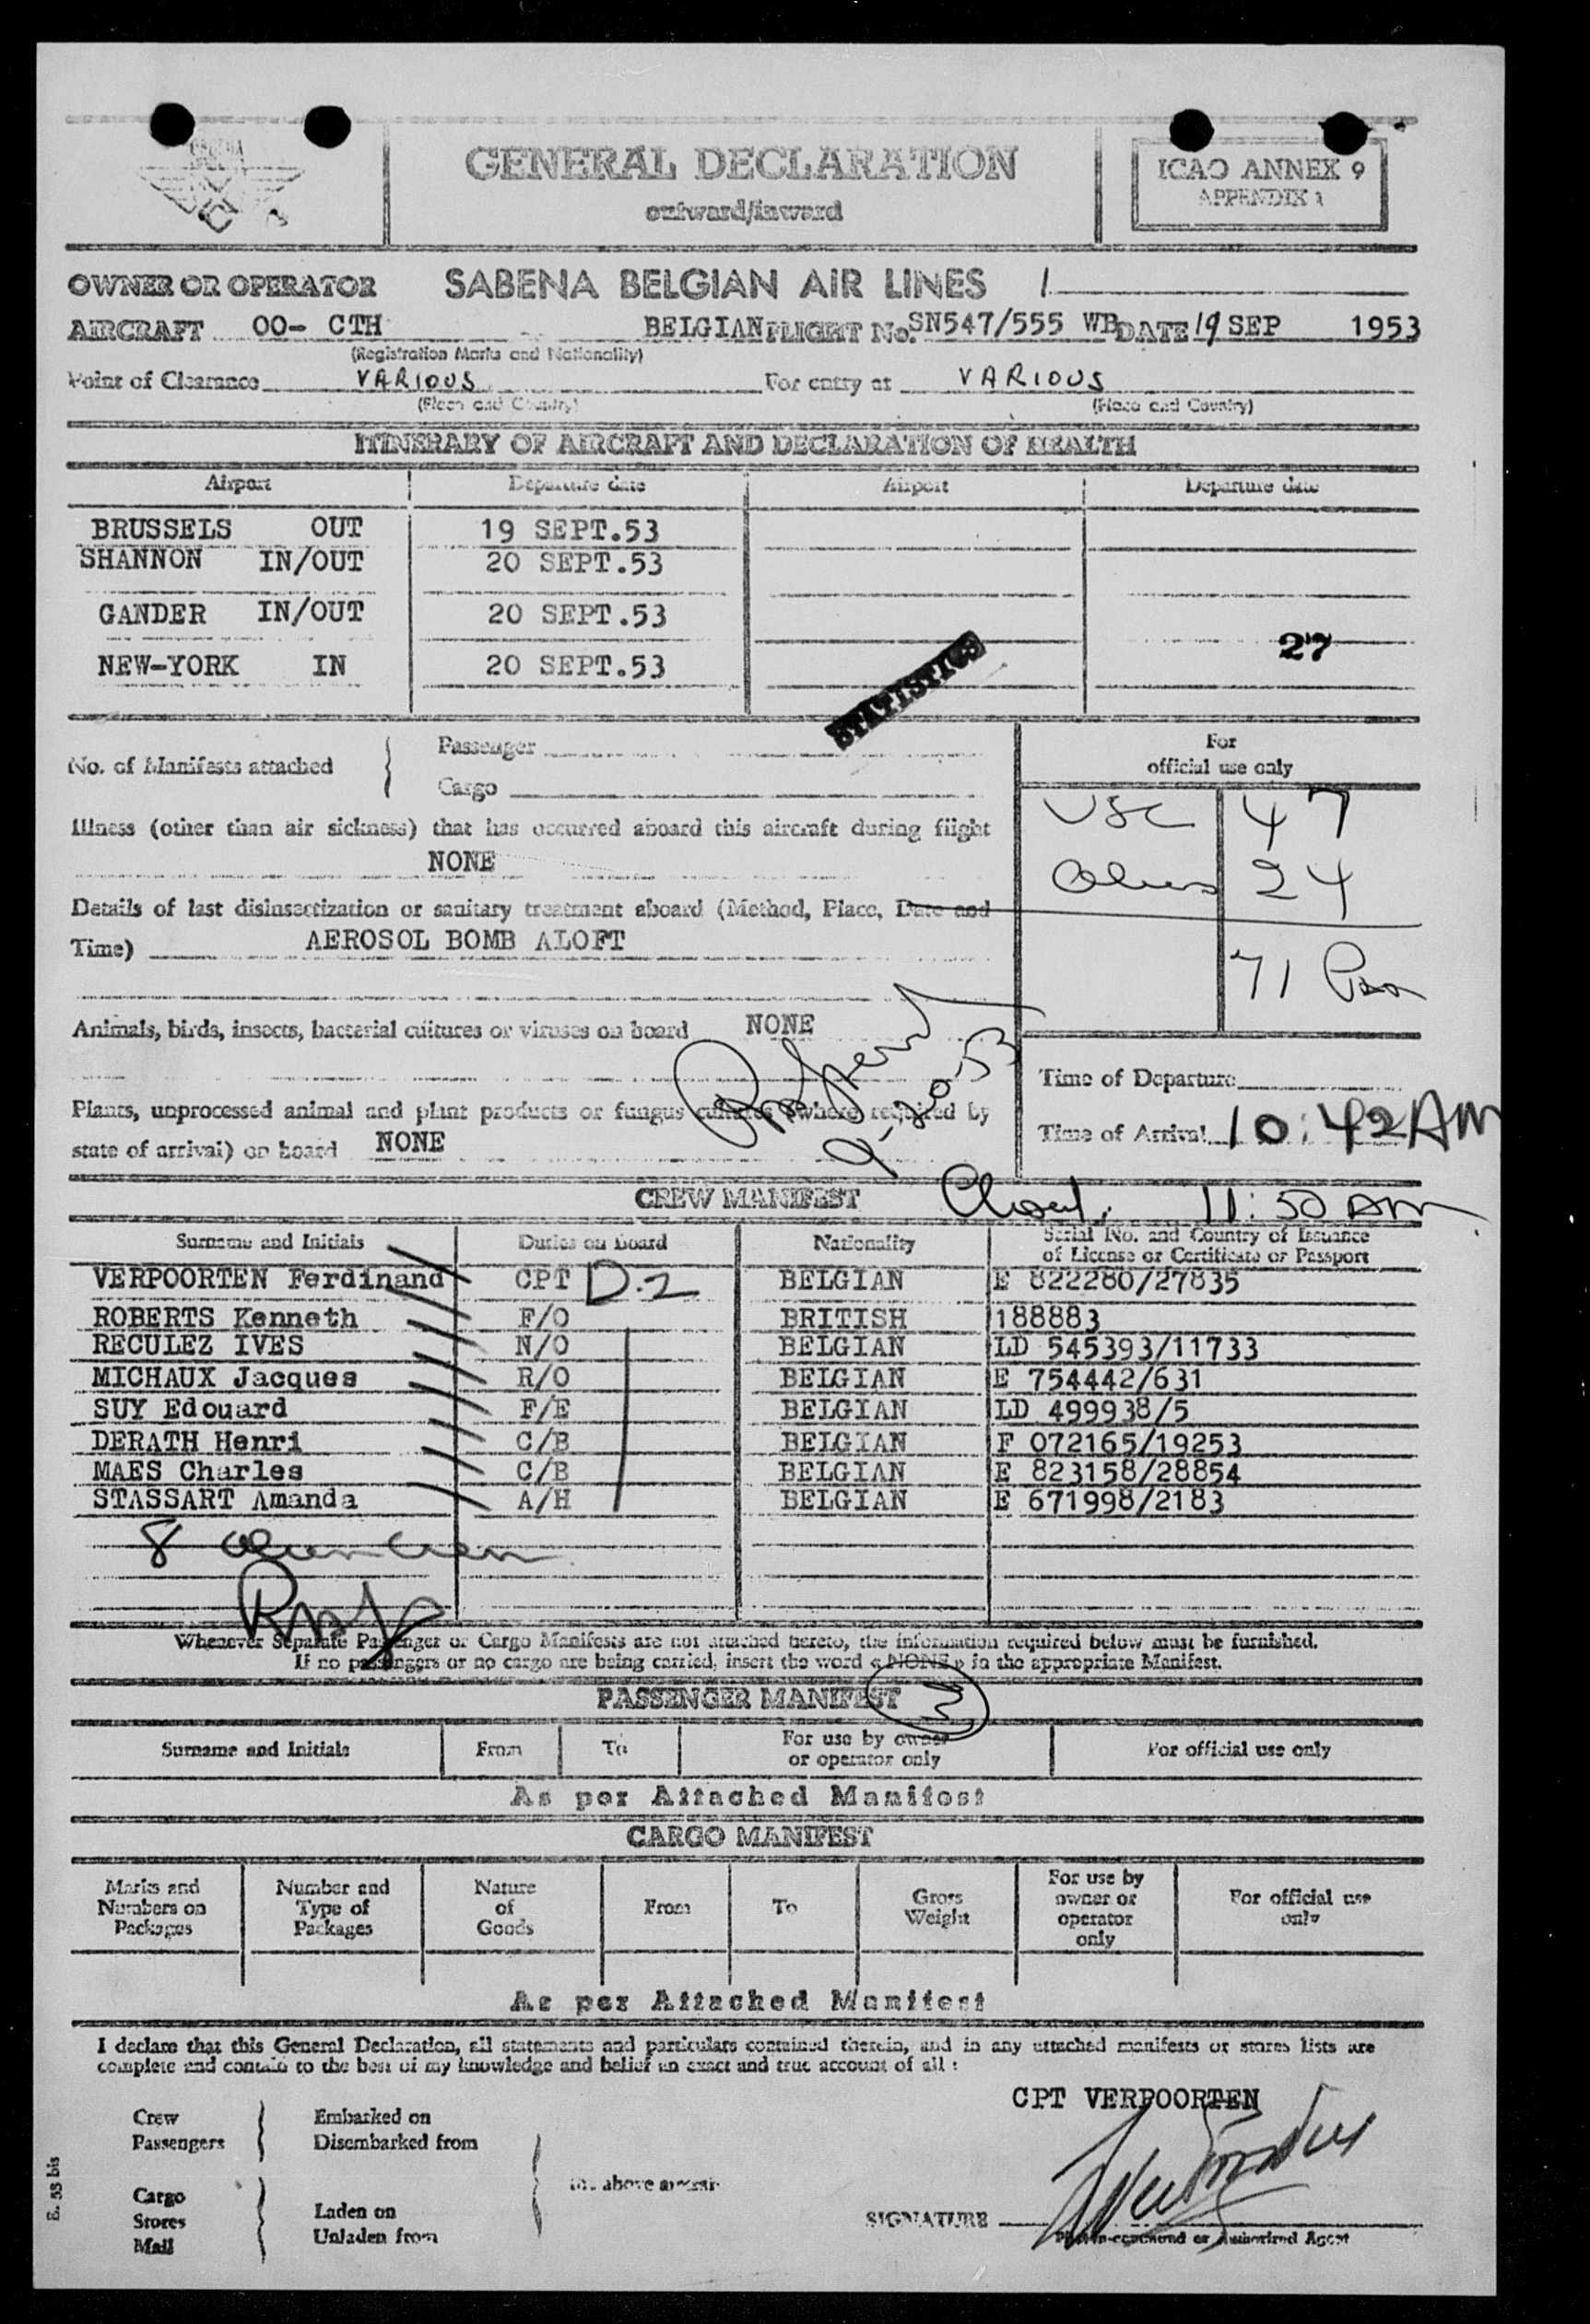 SABENA
GENERAL DECLARATION
outward/inward
ICAO ANNEX 9
APPENDIX 1
OWNER OR OPERATOR SABENA BELGIAN AIR LINES /
AIRCRAFT OO- CTH BELGIAN FLIGHT No. SN547/555 WB DATE 19 SEP 1953
(Registration Marks and Nationality)
Point of Clearance VARIOUS For entry at VARIOUS
(Place and Country) (Place and Country)
ITINERARY OF AIRCRAFT AND DECLARATION OF HEALTH
Airport Departure date Airport Departure date
BRUSSELS OUT 19 SEPT.53
SHANNON IN/OUT 20 SEPT.53
GANDER IN/OUT 20 SEPT.53
27
NEW-YORK IN 20 SEPT.53
STATISTICS
No. of Manifests attached { Passenger
Cargo
For
official use only
USC 47
Illness (other than air sickness) that has occurred aboard this aircraft during flight
NONE
Aliens 24
Details of last disinsectization or sanitary treatment aboard (Method, Place, Date and
Time) AEROSOL BOMB ALOFT
71 Pax
Animals, birds, insects, bacterial cultures or viruses on board NONE
9-20-53
Time of Departure
Plants, unprocessed animal and plant products or fungus cultures (where required by
state of arrival) on board NONE
Time of Arrival 10:42 AM
CREW MANIFEST
11:50 AM
Surname and Initials Duties on board Nationality Serial No. and Country of Issuance
of License or Certificate or Passport
VERPOORTEN Ferdinand CPT D.2 BELGIAN E 822280/27835
ROBERTS Kenneth F/O BRITISH 188883
RECULEZ IVES N/O BELGIAN LD 545393/11733
MICHAUX Jacques R/O BELGIAN E 754442/631
SUY Edouard F/E BELGIAN LD 499938/5
DERATH Henri C/B BELGIAN F 072165/19253
MAES Charles C/B BELGIAN E 823158/28854
STASSART Amanda A/H BELGIAN E 671998/2183
8 alien crew
Whenever Separate Passenger or Cargo Manifests are not attached hereto, the information required below must be furnished.
If no passengers or no cargo are being carried, insert the word « NONE » in the appropriate Manifest.
PASSENGER MANIFEST 3
Surname and Initials From To For use by owner
or operator only For official use only
As per Attached Manifest
CARGO MANIFEST
Marks and
Numbers on
Packages
Number and
Type of
Packages
Nature
of
Goods
From
To
Gross
Weight
For use by
owner or
operator
only
For official use
only
As per Attached Manifest
I declare that this General Declaration, all statements and particulars contained therein, and in any attached manifests or stores lists are
complete and contain to the best of my knowledge and belief an exact and true account of all :
CPT VERPOORTEN
Crew
Passengers
Embarked on
Disembarked from
the above aircraft
Cargo
Stores
Mail
Laden on
Unladen from
SIGNATURE
Pilot-in-command or Authorized Agent
E. 53 bis